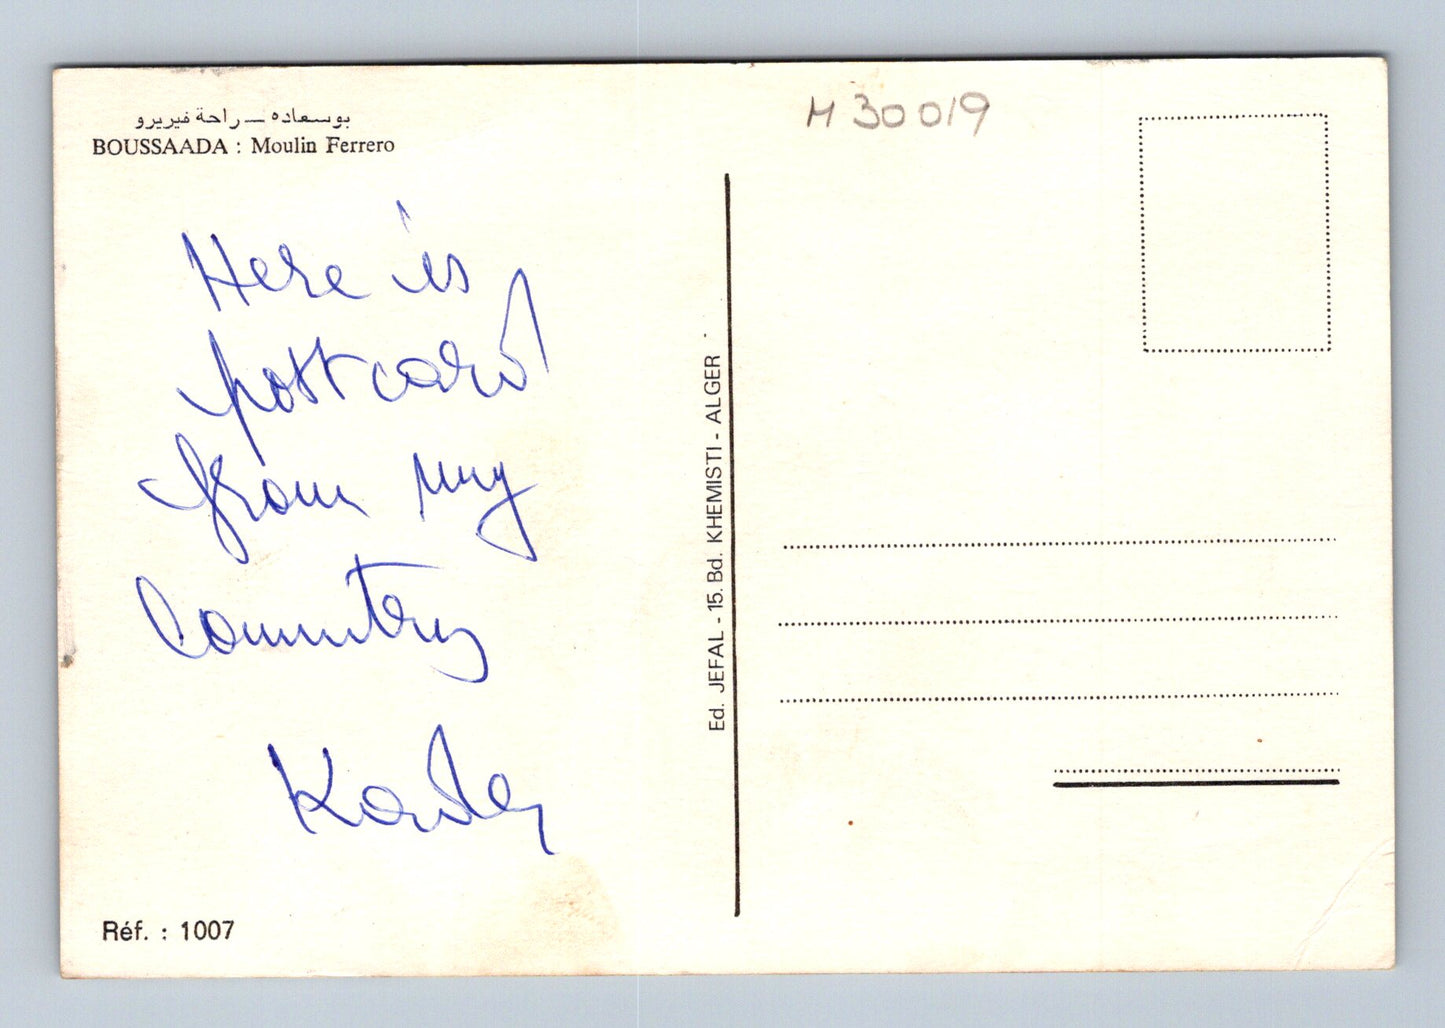 بوسعاده — راحة فيريرو
BOUSSAADA : Moulin Ferrero
M 30019
Here is
postcard
from my
Country
Ed. JEFAL - 15. Bd. KHEMISTI - ALGER
Réf. : 1007